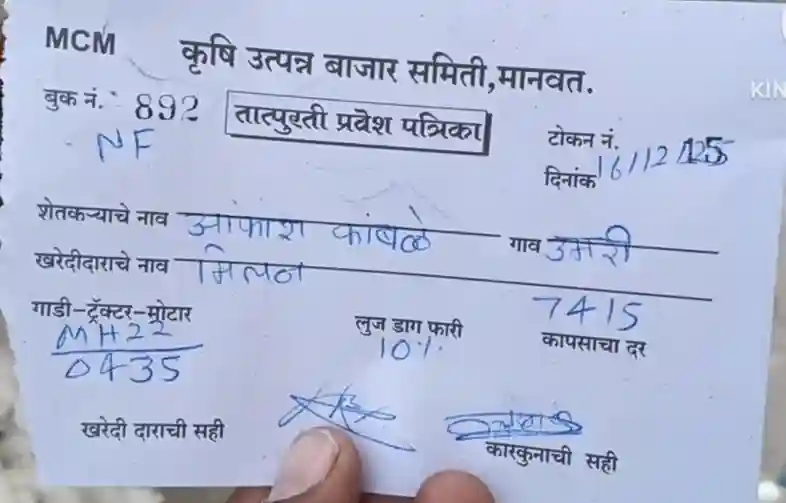 MCM कृषि उत्पन्न बाजार समिती,मानवत.
KIN
बुक नं. 892 तात्पुरती प्रवेश पत्रिका
टोकन नं.
NF
दिनांक 16/12/25
शेतकऱ्याचे नाव आकाश कांबळे गाव उमरी
खरेदीदाराचे नाव मिलन
गाडी-ट्रॅक्टर-मोटार
MH22
0435
लुज डाग फारी
10%
7415
कापसाचा दर
खरेदी दाराची सही
कारकुनाची सही